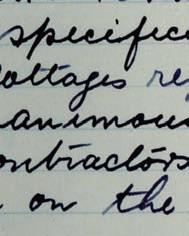 specifice
ottages re
animous
ontractors
on the